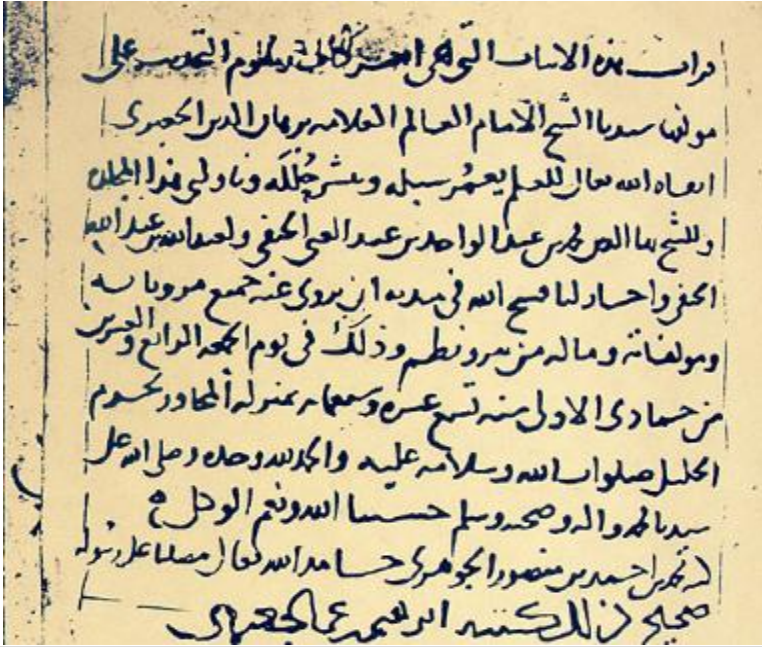 قرات هذه الابيات التي هي اخر كتاب رسوم التحديث على
مولفها سيدنا الشيخ الامام العالم العلامه برهان الدين الجعبرى
ابقاه الله تعالى للعلم يعمر سبله وينشر حلله وناولنى هذا المجلد
وللشيخ بها الدين محمد بن عبد الواحد بن عبد الغنى الحنفى ولعبد الله بن عبد الله
الحنفى واجاز لنا فسح الله فى مدته ان نروى عنه جميع مروياته
ومولفاته وما له من نثر ونظم وذلك فى يوم الجمعه الرابع والعشرين
من جمادى الاولى سنه تسع عشره وسبعمايه بمنزله المجاور لحرم
الخليل صلوات الله وسلامه عليه والحمد لله وحده وصلى الله على
سيدنا محمد واله وصحبه وسلم حسبنا الله ونعم الوكيل
محمد بن احمد بن منصور الجوهرى حامدا لله تعالى مصليا على رسوله
صحيح ذلك كتبه ابرهيم بن عمر الجعبرى